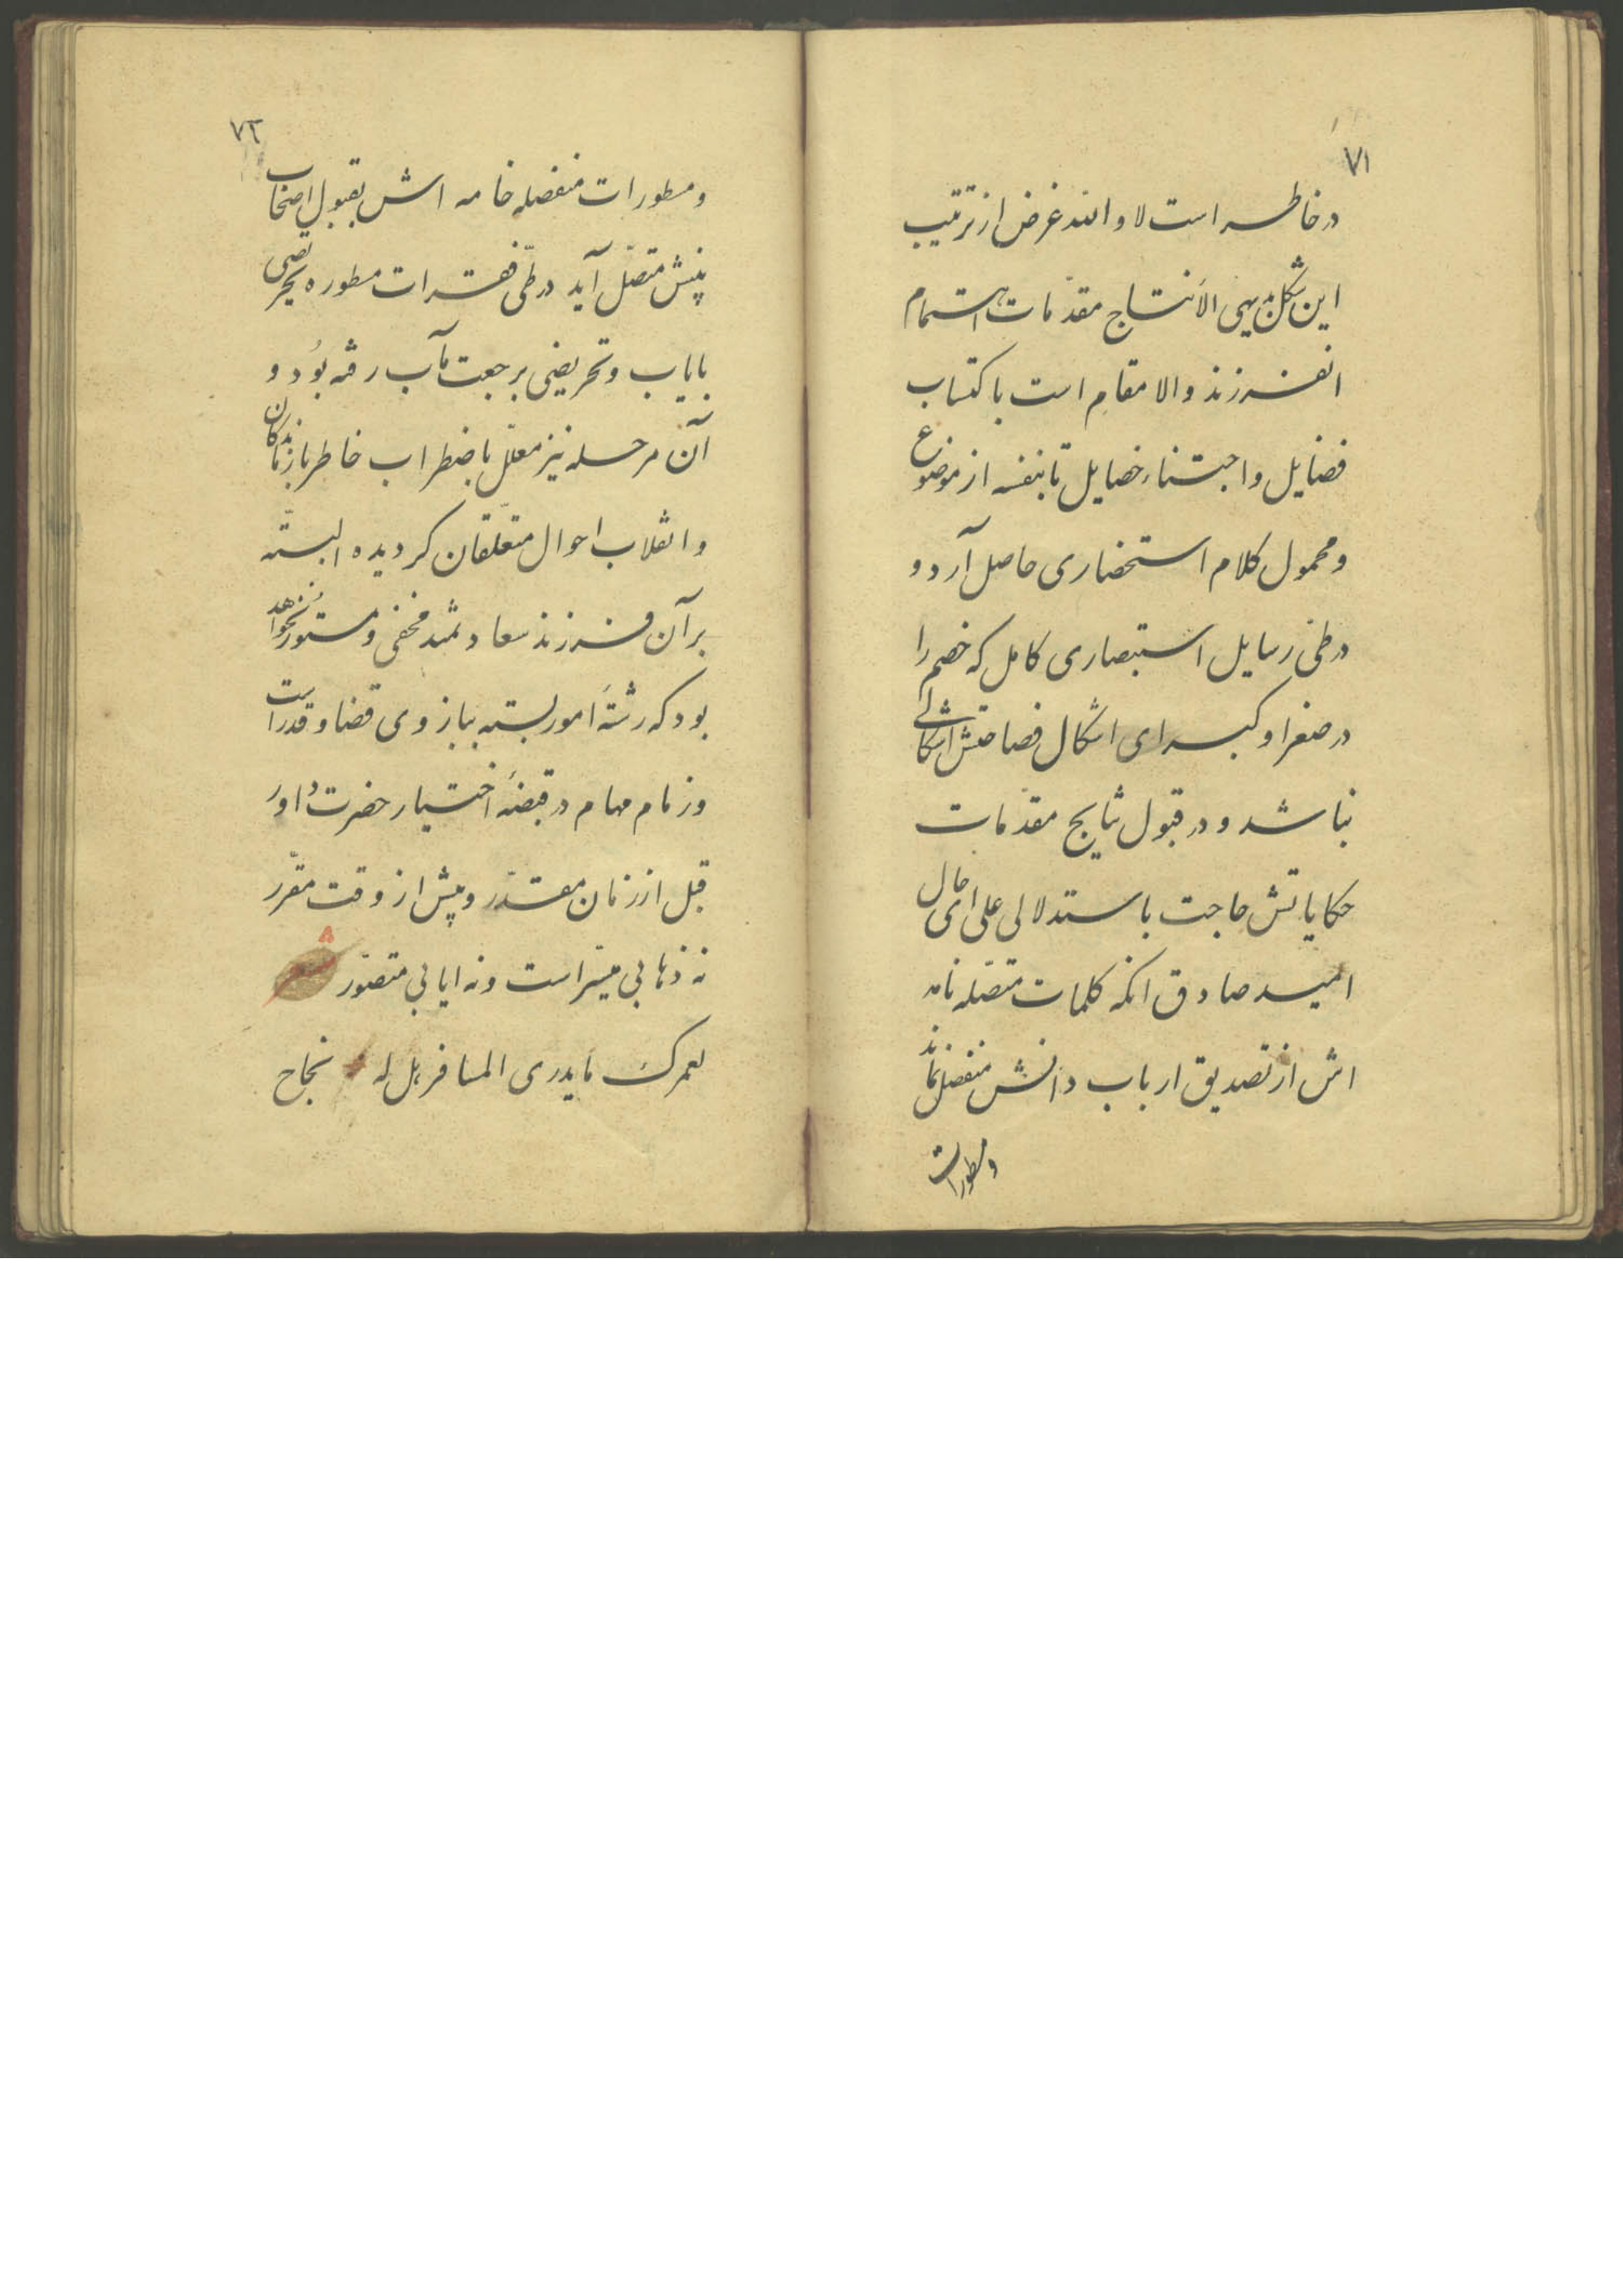 ۷۱
در خاطر است لا والله غرض از ترتیب
این شکل بدیهی الانتاج مقدمات اهتمام
انفرزند والا مقام است باکتساب
فضایل و اجتناء خصایل تا بنفسه از موضوع
و محمول کلام استحضاری حاصل آرد و
در طی رسایل استبصاری کامل که خصم را
در صغرا و کبرای اشکال فصاحتش اشکالی
نباشد و در قبول نتایج مقدمات
حکایاتش حاجت باستدلالی علی ای حال
امید صادق انکه کلمات متصله نامه
اش از تصدیق ارباب دانش منفصل نماند
ومطورات
۷۲
ومطورات منفصله خامه اش بقبول اصحاب
بینش متصل آید در طی فقرات مطوره تحریصی
بایاب و تحریضی برجعت مآب رفته بود و
آن مرحله نیز معلل باضطراب خاطر بازماندکان
و انقلاب احوال متعلقان کردیده البته
بر آن فرزند سعادتمند مخفی و مستور نخواهد
بود که رشتهٔ امور بسته ببازوی قضا و قدر است
وزمام مهام در قبضهٔ اختیار حضرت داور
قبل از زمان مقدر و پیش از وقت مقرر
نه ذهابی میسر است ونه ایابی متصور شعر
لعمرک مایدری المسافر هل له نجاح